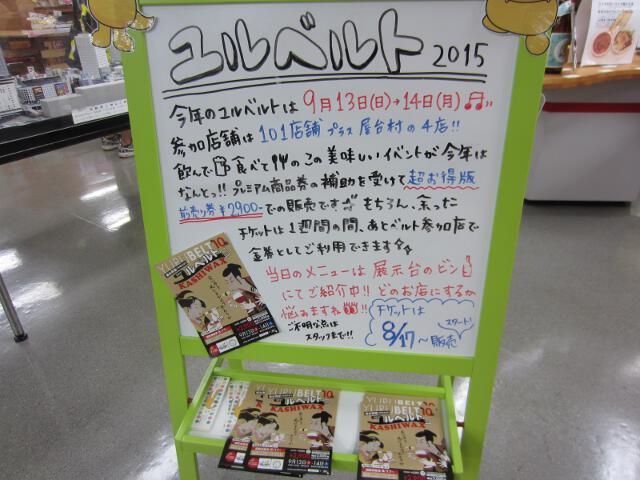 ユルベルト 2015
今年のユルベルトは 9月13日(日)→14日(月)
参加店舗は 101店舗 プラス 屋台村の4店!!
飲んで 食べて のこの美味しいイベントが今年は
なんとっ!! プレミアム商品券の補助を受けて超お得版
前売り券¥2900-での販売です もちろん、余った
チケットは1週間の間、あとベルト参加店で
金券としてご利用できます
当日のメニューは 展示台のビン
にてご紹介中!! どのお店にするか
悩みますね!!
ご不明な点は
スタッフまで!!!
チケットは
8/17〜販売
スタート!
YURUBELT
ユルベルト
KASHIWAX
YURUBELT
ユルベルト
KASHIWAX
YURUBELT
ユルベルト
KASHIWAX